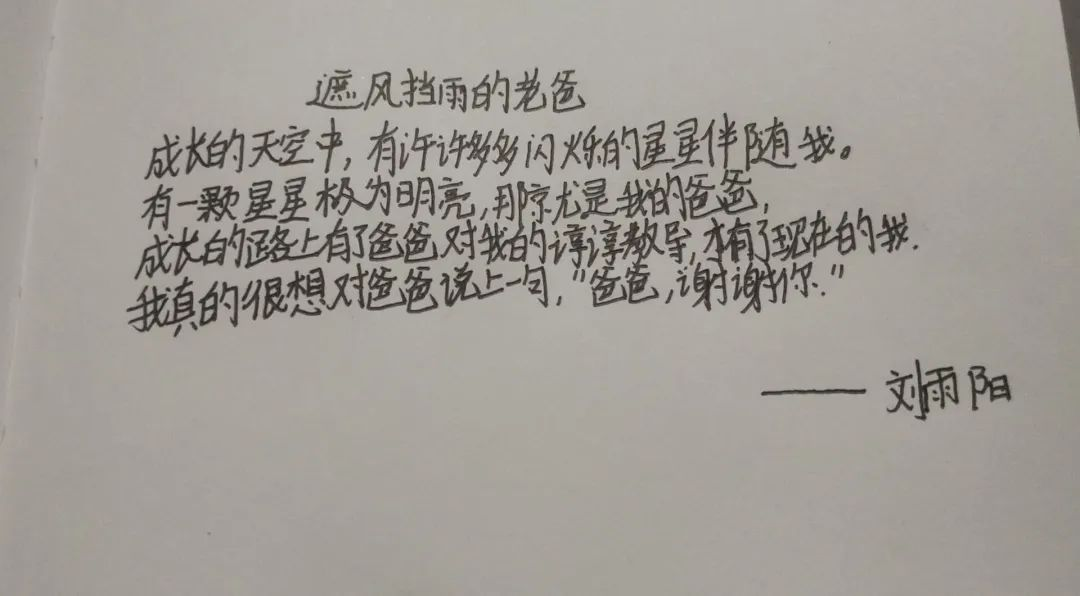 遮风挡雨的老爸
成长的天空中，有许许多多闪烁的星星伴随我。
有一颗星星极为明亮，那就是我的爸爸，
成长的路上有了爸爸对我的谆谆教导，才有了现在的我.
我真的很想对爸爸说上一句，"爸爸，谢谢你."
—— 刘雨阳